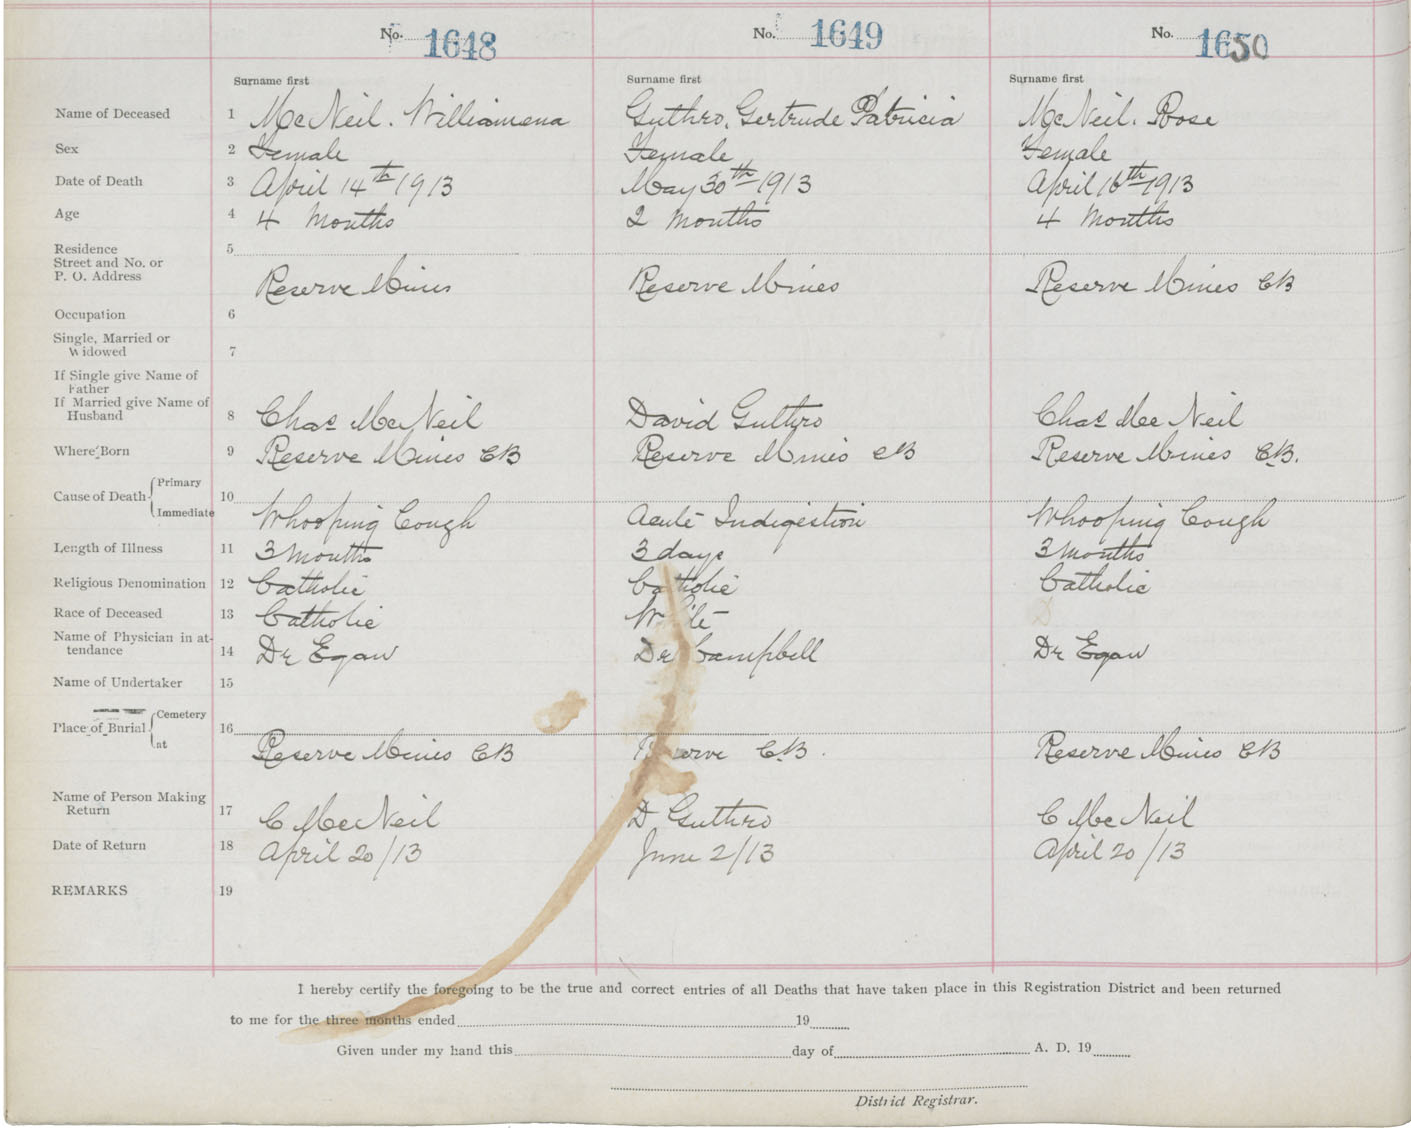 No. 1648 No. 1649 No. 1650
Surname first Surname first Surname first
Name of Deceased 1 McNeil. Williamena Guthro, Gertrude Patricia McNeil. Rose
Sex 2 Female Female Female
Date of Death 3 April 14th 1913 May 30th 1913 April 16th 1913
Age 4 4 Months 2 Months 4 Months
Residence 5
Street and No. or
P. O. Address Reserve Mines Reserve Mines Reserve Mines CB
Occupation 6
Single, Married or
Widowed 7
If Single give Name of
Father
If Married give Name of
Husband 8 Chas McNeil David Guthro Chas McNeil
Where Born 9 Reserve Mines CB Reserve Mines CB Reserve Mines C.B.
Primary
Cause of Death 10
Immediate Whooping Cough Acute Indigestion Whooping Cough
Length of Illness 11 3 months 3 days 3 months
Religious Denomination 12 Catholic Catholic Catholic
Race of Deceased 13 Catholic White
Name of Physician in at-
tendance 14 Dr Egan Dr Campbell Dr Egan
Name of Undertaker 15
Cemetery
Place of Burial 16
at Reserve Mines CB Reserve C.B. Reserve Mines CB
Name of Person Making
Return 17 C McNeil D Guthro C McNeil
Date of Return 18 April 20/13 June 2/13 April 20/13
REMARKS 19
I hereby certify the foregoing to be the true and correct entries of all Deaths that have taken place in this Registration District and been returned
to me for the three months ended 19
Given under my hand this day of A. D. 19
District Registrar.